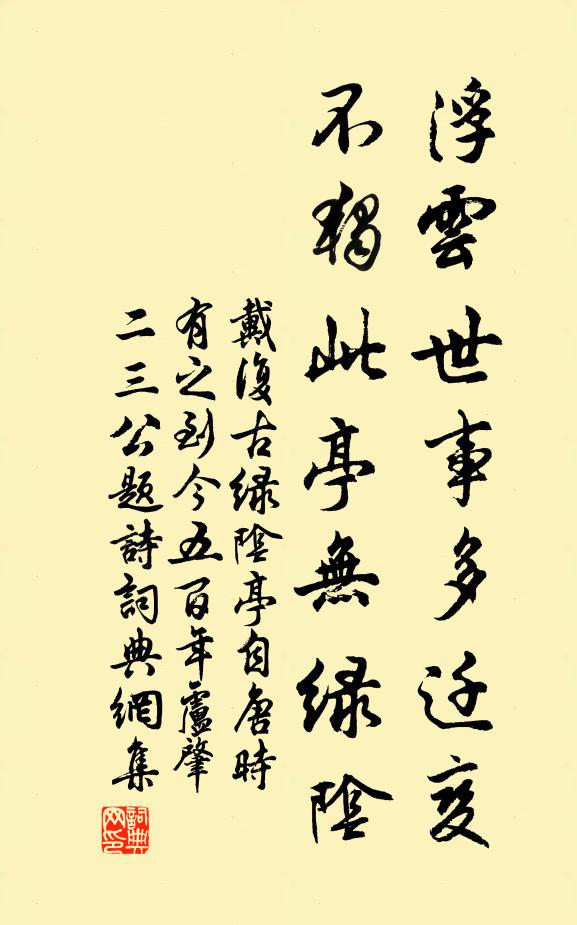 浮雲世事多迁变
不獨此亭無緑陰
戴復古緑陰亭自唐時
有之到今五百年盧肇
二三公題詩詞典網集
詞典网印